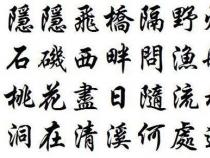 隱隱飛橋隔野
石磯西畔問漁
桃花盡日隨流
洞在清溪何處